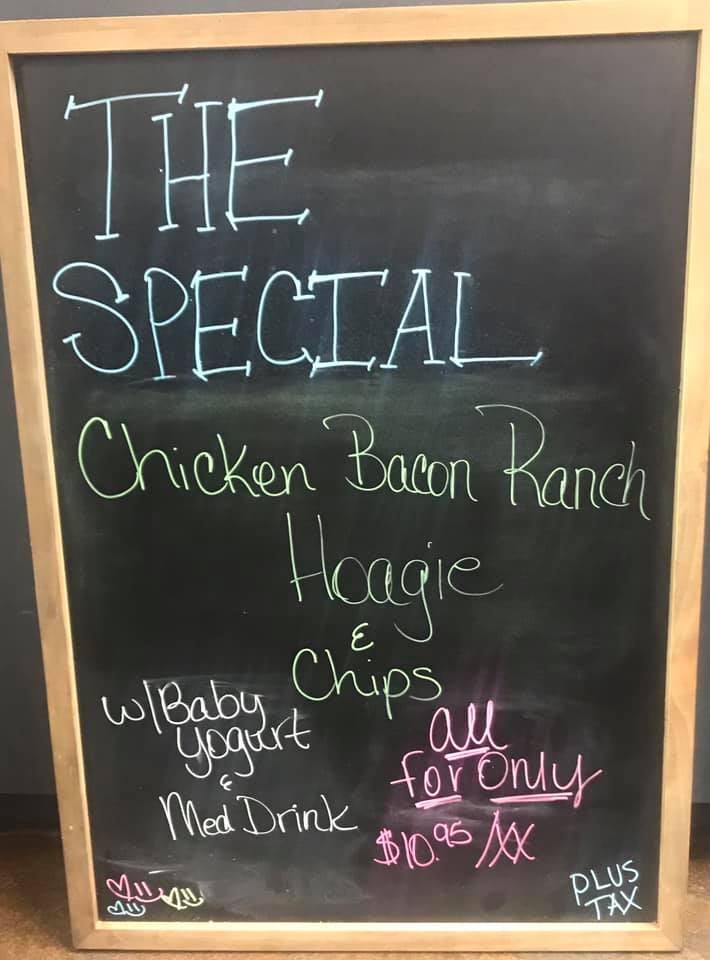 THE
SPECIAL
Chicken Bacon Ranch
Hoagie
&
Chips
w/Baby
Yogurt
&
Med Drink
all
for Only
$10.95
PLUS
TAX